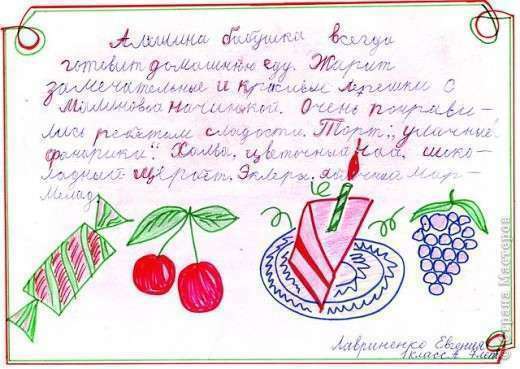 Алёшина бабушка всегда
готовит домашнюю еду. Жарит
замечательные и красивые лепешки с
Малиновой начинкой. Очень понрави-
лись ребятам сладости. Торт: "уличные
фонарики". Халва, цветочный чай, шоко-
ладный щербет. Эклеры, яблочный мар-
мелад.
Лавриненко Евгения
1класс А 7лет
Страна Мастеров